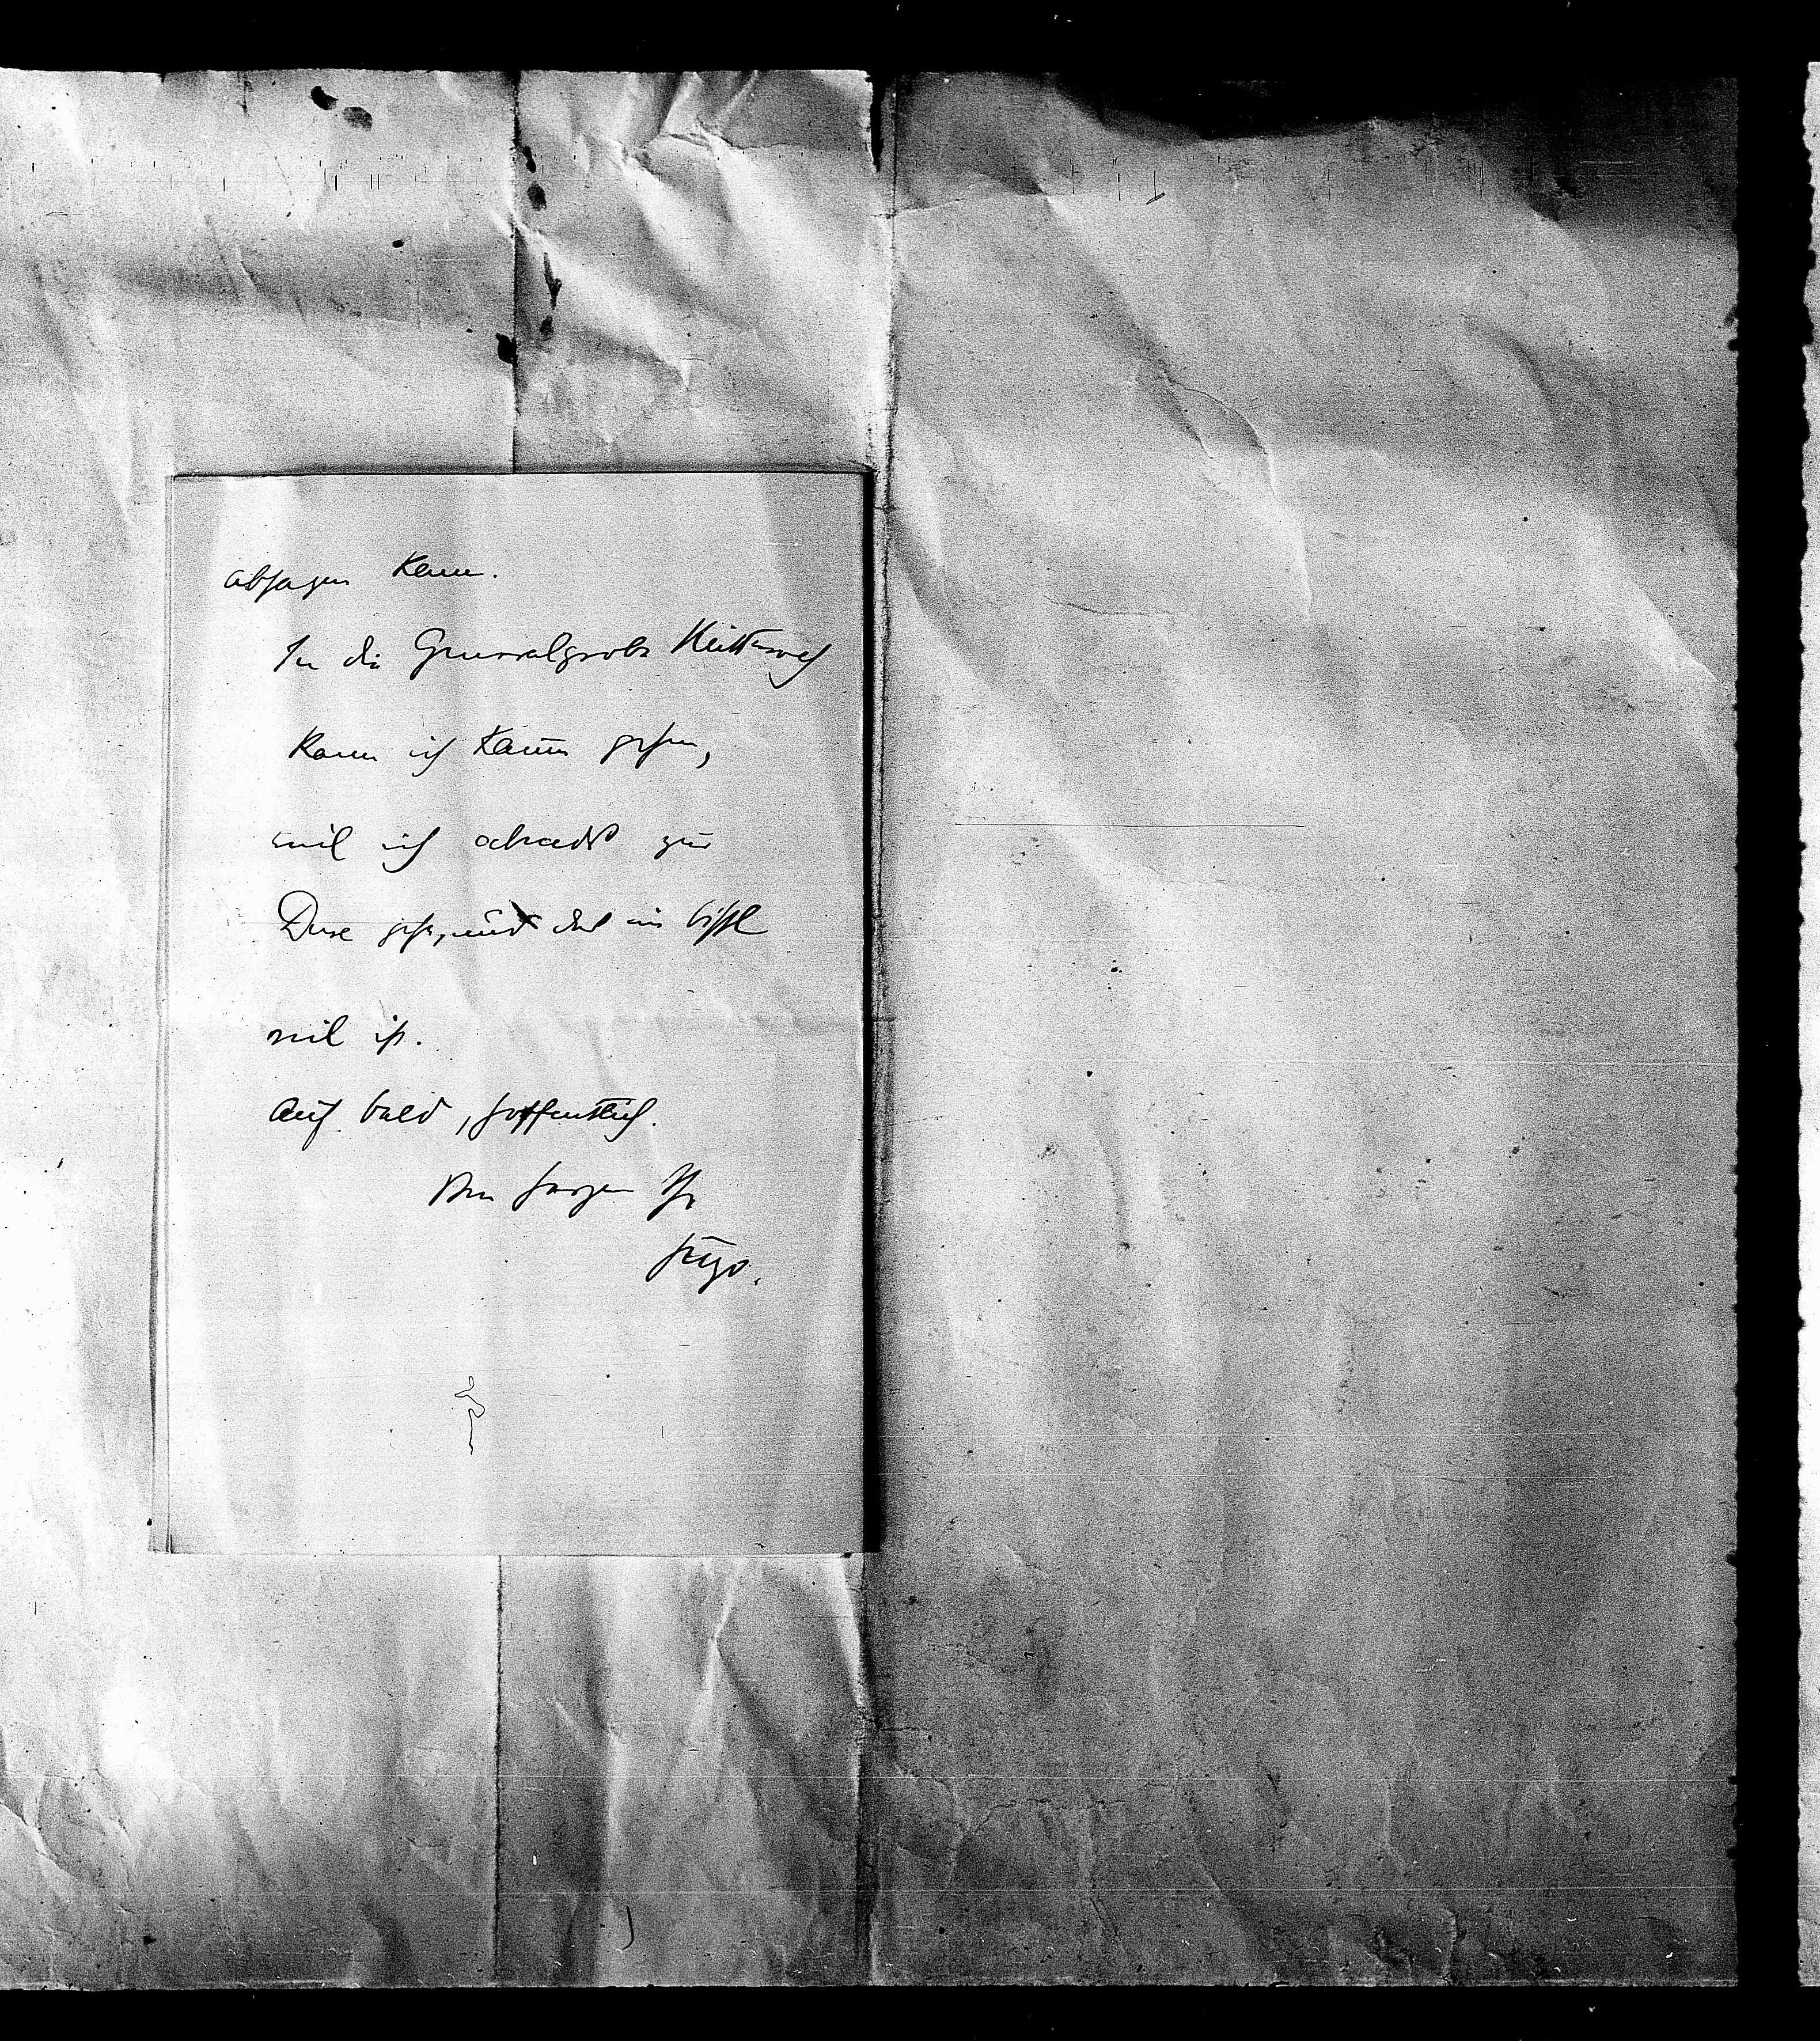 absagen kann.
In die Generalprobe Mittwoch
kann ich kaum gehen,
weil ich abends zur
Duse gehe, und das ein bissl
viel ist.
Auf bald, hoffentlich.
Von Herzen Ihr
Hugo.